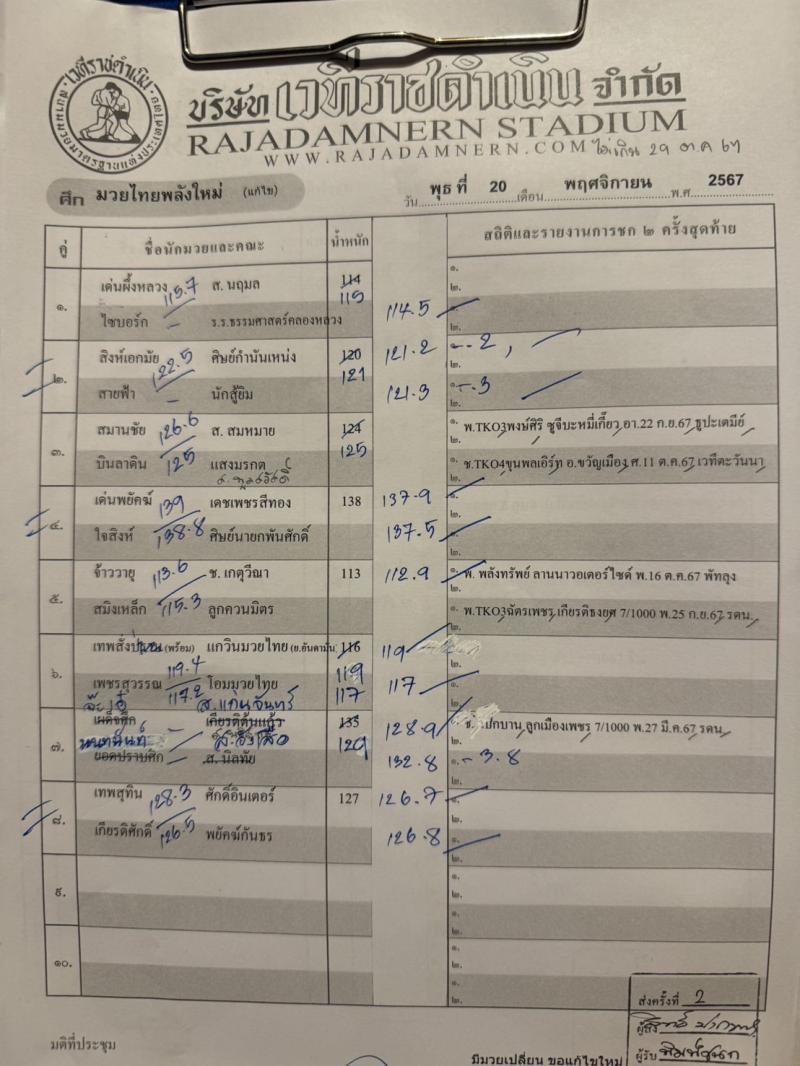 เวทีราชดำเนิน
บริษัท เวทีราชดำเนิน จำกัด
RAJADAMNERN STADIUM
WWW.RAJADAMNERN.COM ไม่เกิน 29 ต.ค 67
ศึก มวยไทยพลังใหม่ (แก้ไข) วัน พุธ ที่ 20 เดือน พฤศจิกายน พ.ศ. 2567
คู่ ชื่อนักมวยและคณะ น้ำหนัก สถิติและรายงานการชก ๒ ครั้งสุดท้าย
๑. เด่นผึ้งหลวง 115.7 ส. นฤมล 114 115 ๑. ๒.
ไซบอร์ก – ร.ร.ธรรมศาสตร์คลองหลวง 114.5 ๑. ๒.
๒. สิงห์เอกมัย 122.5 ศิษย์กำนันเหน่ง 120 121 121.2 ๑. -.2, ๒.
สายฟ้า – นักสู้ยิม 121.3 ๑. -.3 ๒.
๓. สมานชัย 126.6 ส. สมหมาย 124 125 ๑. พ.TKO3พงษ์ศิริ ชูจีบะหมี่เกี๊ยว อา.22 ก.ย.67 ธูปะเตมีย์ ๒.
บินลาดิน 125 แสงมรกต ๑. ช.TKO4ขุนพลเอิร์ท อ.ขวัญเมือง ศ.11 ต.ค.67 เวทีตะวันนา ๒.
๔. เด่นพยัคฆ์ 139 เดชเพชรสีทอง 138 137.9 ๑. ๒.
ใจสิงห์ 138.8 ศิษย์นายกพันศักดิ์ 137.5 ๑. ๒.
๕. จ้าววายุ 113.6 ช. เกตุวีณา 113 112.9 ๑. พ. พลังทรัพย์ ลานนาวอเตอร์ไซด์ พ.16 ต.ค.67 พัทลุง ๒.
สมิงเหล็ก 115.3 ลูกควนมิตร ๑. พ.TKO3ฉัตรเพชร เกียรติธงยศ 7/1000 พ.25 ก.ย.67 รดน. ๒.
๖. (พร้อม) แกวินมวยไทย (ย.อันดามัน) 116 119 119 ๒.
เพชรสุวรรณ 119.4 117.2 โอมมวยไทย 117 117 ๑. ๒.
จ๊ะเอ๋ ส.แก่นจันทร์
๗. เผด็จศึก เกียรติตุ้มแก้ว 135 128.9 ช. ลูกเมืองเพชร 7/1000 พ.27 มี.ค.67 รดน. ๒.
129
ยอดปราบศึก ส. นิลทัย 132.8 ๑. -3.8 ๒.
๘. เทพสุทิน 128.3 ศักดิ์อินเตอร์ 127 126.7 ๑. ๒.
เกียรติศักดิ์ 126.5 พยัคฆ์กันธร 126.8 ๑. ๒.
๙. ๑. ๒.
๑. ๒.
๑๐. ๑. ๒.
๑. ๒.
ส่งครั้งที่ 2
ผู้ส่ง
มติที่ประชุม
ผู้รับ
มีมวยเปลี่ยน ขอแก้ไขใหม่